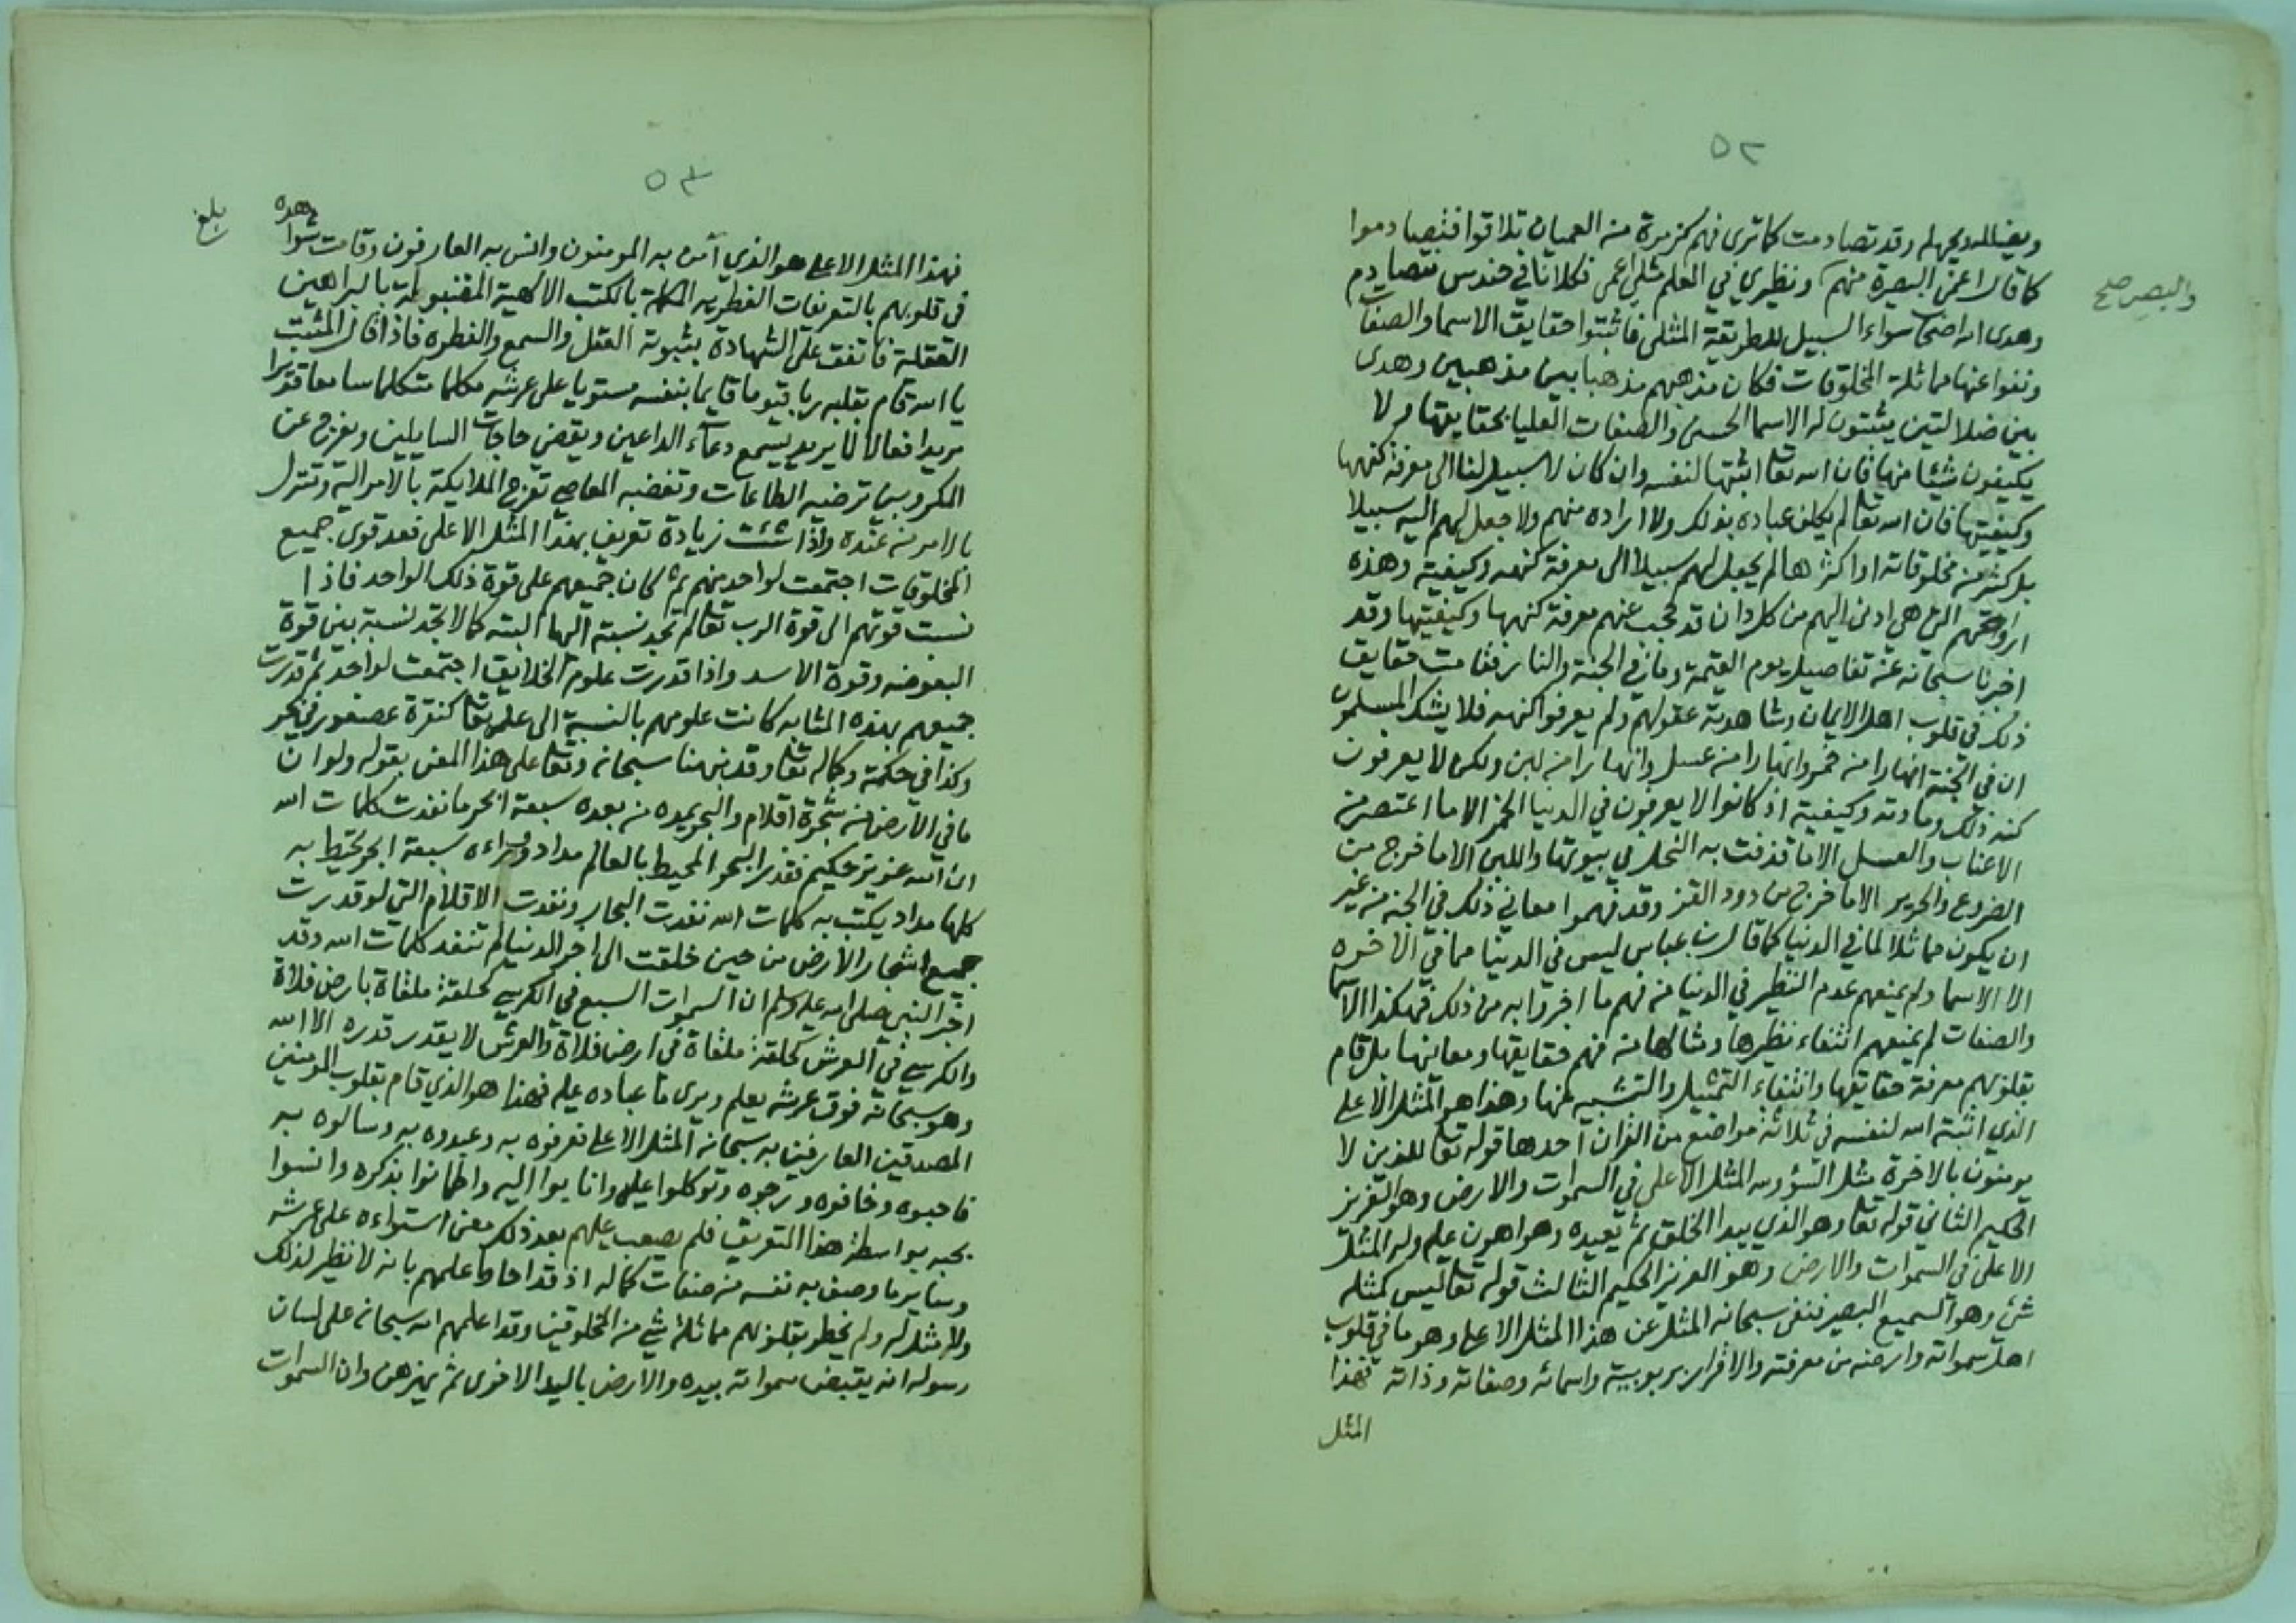 ٥٢
ويضلله ويجهله وقد تصادمت كما ترى فهم كزمرة من العميان تلاقوا فتصادموا
كما قال اعمى البصيرة منهم ونظيري في العلم مثلي اعمى فكلانا في حندس نتصادم
والبصر صح
وهدى الله اصحاب سواء السبيل للطريقة المثلى فاثبتوا حقايق الاسما والصفات
ونفوا عنها مماثلة المخلوقات فكان مذهبهم مذهبا بين مذهبين وهدى
بين ضلالتين يثبتون له الاسما الحسنى والصفات العليا بحقايقها ولا
يكيفون شيئا منها فان الله تعا اثبتها لنفسه وان كان لا سبيل لنا الى معرفة كنهها
وكيفيتها فان الله تعا لم يكلف عباده بذلك ولا اراده منهم ولا جعل لهم اليه سبيلا
بل كثير من مخلوقاته او اكثرها لم يجعل لهم سبيلا الى معرفة كنهه وكيفيته وهذه
ارواحهم التي هي ادنى اليهم من كل دان قد حجب عنهم معرفة كنهها وكيفيتها وقد
اخبرنا سبحانه عن تفاصيل يوم القيمة وما في الجنة والنار فقامت حقايق
ذلك في قلوب اهل الايمان وشاهدته عقولهم ولم يعرفوا كنهه فلا يشك المسلمون
ان في الجنة انهارا من خمر وانهارا من عسل وانهارا من لبن ولكن لا يعرفون
كنه ذلك ومادته وكيفيته اذ كانوا لا يعرفون في الدنيا الخمر الا ما اعتصر من
الاعناب والعسل الا ما قذفت به النحل في بيوتها واللبن الا ما خرج من
الضروع والحرير الا ما خرج من دود القز وقد فهموا معاني ذلك في الجنة من غير
ان يكون مماثلا لما في الدنيا كما قال بن عباس ليس في الدنيا مما في الاخره
الا الاسما ولم يمنعهم عدم النظير في الدنيا من فهم ما اخبروا به من ذلك فهكذا الاسما
والصفات لم يمنعهم انتفاء نظيرها ومثالها من فهم حقايقها ومعانيها بل قام
بقلوبهم معرفة حقايقها وانتفاء التمثيل والتشبيه عنها وهذا هو المثل الاعلى
الذي اثبته الله لنفسه في ثلاثة مواضع من القران احدها قوله تعا للذين لا
يومنون بالاخرة مثل السؤ ولله المثل الاعلى في السموات والارض وهو العزيز
الحكيم الثاني قوله تعا وهو الذي يبدا الخلق ثم يعيده وهو اهون عليه وله المثل
الاعلى في السموات والارض وهو العزيز الحكيم الثالث قوله تعا ليس كمثله
شئ وهو السميع البصير فنفى سبحانه المثل عن هذا المثل الاعلى وهو ما في قلوب
اهل سمواته وارضه من معرفته والاقرار بربوبيته واسمائه وصفاته وذاته فهذا
المثل
٥٣
بلغ
فهذا المثل الاعلى هو الذي آمن به المومنون وانس به العارفون وقامت شواهده
في قلوبهم بالتعريفات الفطريه المكملة بالكتب الالهية المقبولة بالبراهين
العقلية فاتفق على الشهادة بثبوته العقل والسمع والفطره فاذا قال المثبت
يا الله قام بقلبه ربا قيوما قايما بنفسه مستويا على عرشه مكلما متكلما سامعا قديرا
مريدا فعالا لما يريد يسمع دعاء الداعين ويقضي حاجات السايلين ويفرج عن
المكروبين ترضيه الطاعات وتغضبه المعاصي تعرج الملايكة بالامر اليه وتتنزل
بالامر من عنده واذا شئت زيادة تعريف بهذا المثل الاعلى فعد قوى جميع
المخلوقات اجتمعت لواحد منهم ثم كان جميعهم على قوة ذلك الواحد فاذا
نسبت قوتهم الى قوة الرب تعا لم تجد نسبة اليها البته كما لا تجد نسبة بين قوة
البعوضه وقوة الاسد واذا قدرت علوم الخلايق اجتمعت لواحد ثم قدرت
جميعهم بهذه المثابه كانت علومهم بالنسبة الى علمه تعا كنقرة عصفور في بحر
وكذا في حكمته وكماله تعا وقد نبهنا سبحانه وتعا على هذا المعنى بقوله ولو ان
ما في الارض من شجرة اقلام والبحر يمده من بعده سبعة ابحر ما نفدت كلمات الله
ان الله عزيز حكيم فقدر البحر المحيط بالعالم مداد ووراءه سبعة ابحر تحيط به
كلها مداد يكتب به كلمات الله نفدت البحار ونفدت الاقلام التي لو قدرت
جميع اشجار الارض من حين خلقت الى اخر الدنيا لم تنفد كلمات الله وقد
اخبر النبي صلى الله عليه وسلم ان السموات السبع في الكرسي كحلقة ملقاة بارض فلاة
والكرسي في العرش كحلقة ملقاة في ارض فلاة والعرش لا يقدر قدره الا الله
وهو سبحانه فوق عرشه يعلم ويرى ما عباده عليه فهذا هو الذي قام بقلوب المومنين
المصدقين العارفين به سبحانه المثل الاعلى فعرفوه به وعبدوه به وسالوه به
فاحبوه وخافوه ورجوه وتوكلوا عليه وانابوا اليه واطمانوا بذكره وانسوا
بحبه بواسطة هذا التعريف فلم يصعب عليهم بعد ذلك معنى استواءه على عرشه
وساير ما وصف به نفسه من صفات كماله اذ قد احاط علمهم بانه لا نظير لذلك
ولا مثل له ولم يخطر بقلوبهم مماثلة شي من المخلوقين وقد اعلمهم الله سبحانه على لسان
رسوله انه يقبض سمواته بيده والارض باليد الاخرى ثم يهزهن وان السموات